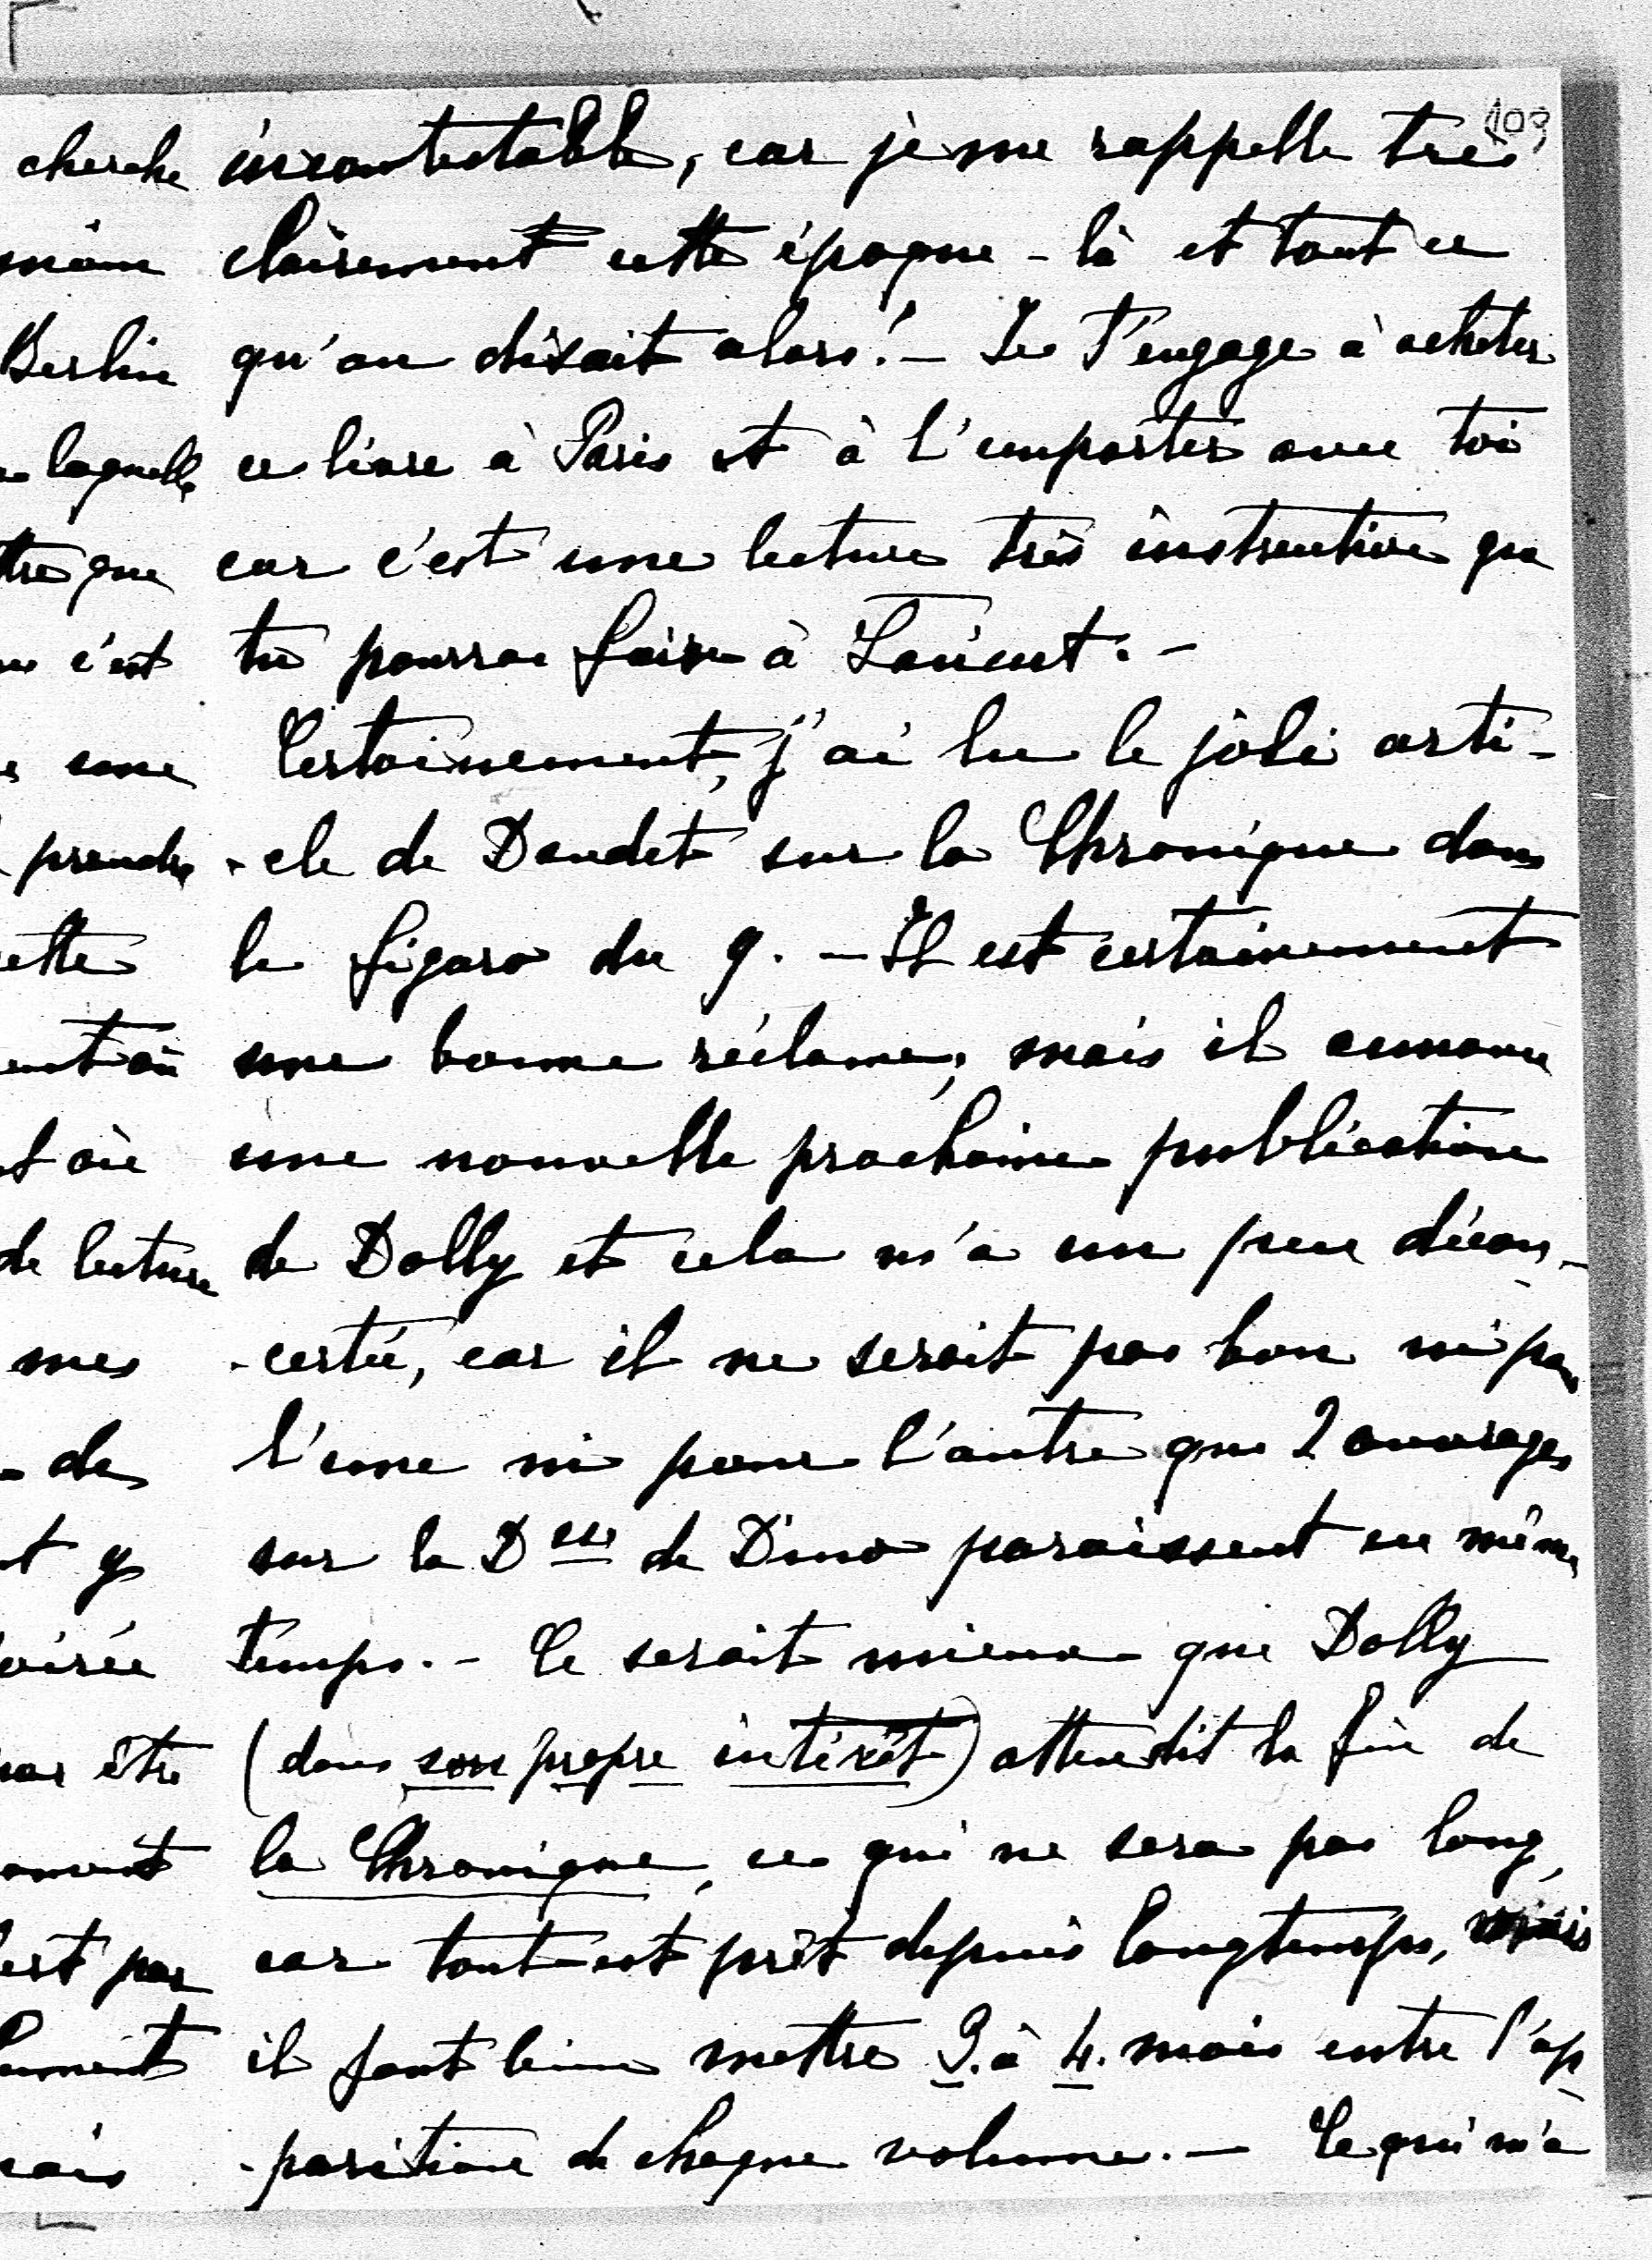 103
incontestable, car je me rappelle très
clairement cette époque-là et tout ce
qu'on disait alors! - Je t'engage à acheter
ce livre à Paris et à l'emporter avec toi
car c'est une lecture très instructive que
tu pourras faire à
Certainement, j'ai lu le joli arti-
-cle de Daudet sur la Chronique dans
le figaro du 9. - Il est certainement
une bonne réclame, mais il annonce
une nouvelle prochaine publication
de Dolly et cela m'a un peu décon-
-certée, car il ne serait pas bon ni pour
l'une ni pour l'autre que 2 ouvrages
sur la Dsse de Dino paraissent en même
temps. - Ce serait mieux que Dolly
(dans son propre intérêt) attendit la fin de
la Chronique, ce qui ne sera pas long,
car tout est prêt depuis longtemps, mais
il faut bien mettre 3. à 4. mois entre l'ap
-parition de chaque volume. - Ce qui m'a
cherche
Berlin
laquelle
que
c'est
une
prendre
où
de lecture
mes
de
y
être
pas